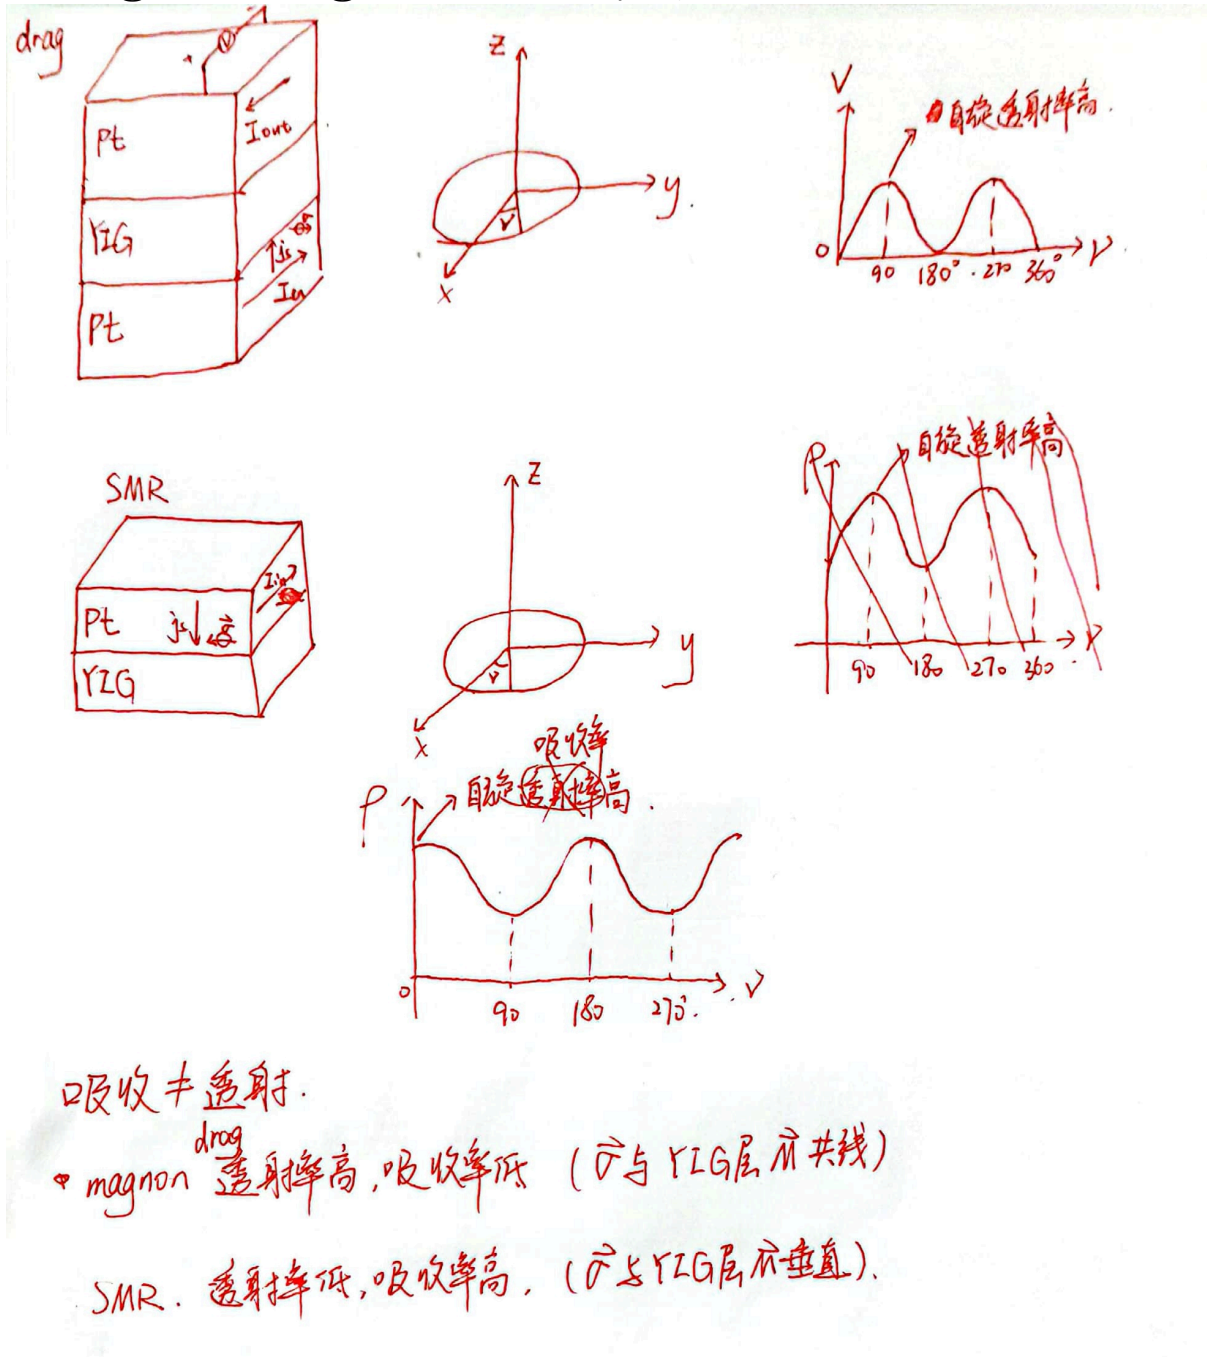 drag
Pt
Iout
YIG
js
σ
Iin
Pt
Z
y
x
γ
V
自旋透射率高.
0 90 180° 270 360° γ
SMR
Iin
Pt js σ
YIG
Z
y
x
γ
ρ
自旋透射率高
90 180 270 360 γ
吸收率
ρ 自旋透射率高.
0
90 180 270°. γ
吸收≠透射.
drag
magnon 透射率高,吸收率低 (σ与YIG层m共线)
SMR. 透射率低,吸收率高, (σ与YIG层m垂直).